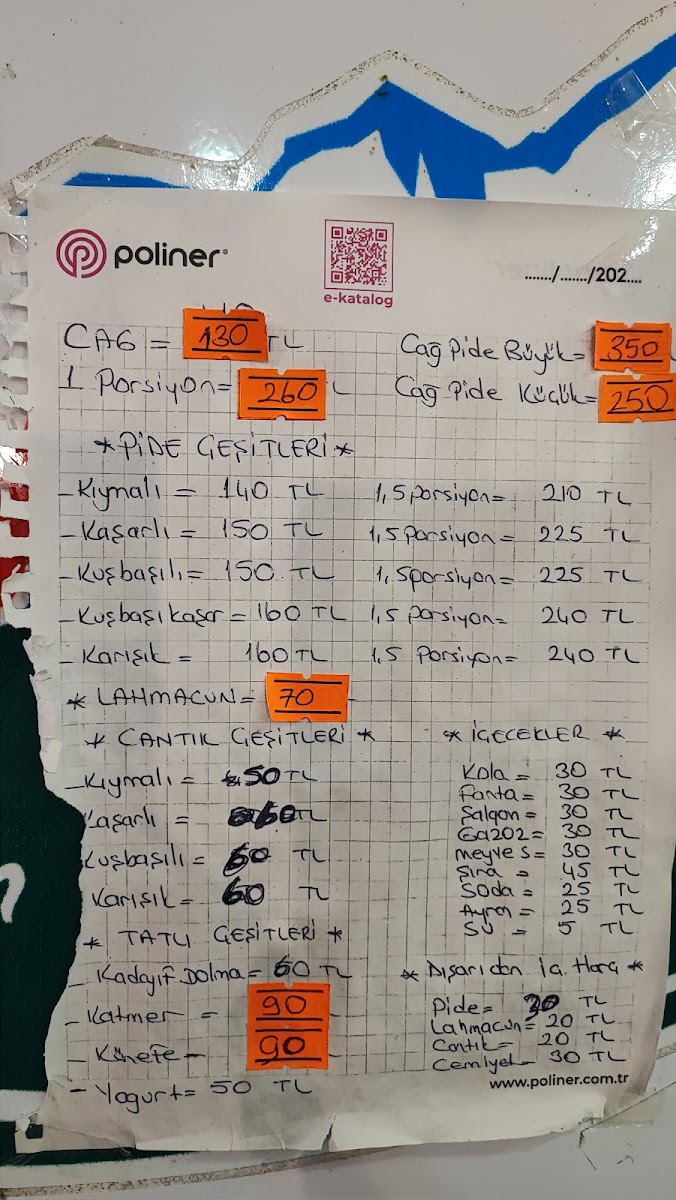 poliner®
e-katalog
......./......./202....
CAG = 130 TL
1 Porsiyon= 260 L
Cağ Pide Büyük= 350
Cağ Pide Küçük= 250
*PİDE GEŞİTLERİ*
-Kıymalı = 140 TL 1,5 Porsiyon= 210 TL
-Kaşarlı = 150 TL 1,5 Porsiyon= 225 TL
-Kuşbaşılı= 150 TL 1,5porsiyon= 225 TL
-Kuşbaşıkaşar=160 TL 1,5 Porsiyon= 240 TL
-Karışık = 160 TL 1,5 Porsiyon= 240 TL
* LAHMACUN= 70
* CANTIK GEŞİTLERİ *
-Kıymalı = 50 TL
Kaşarlı = 60 TL
Kuşbaşılı= 60 TL
Karışık = 60 TL
* TATLI GEŞİTLERİ *
-Kadayıf Dolma= 60 TL
-Katmer = 90
-Künefe- 90
- Yogurt= 50 TL
* İGECEKLER *
Kola = 30 TL
Fanta= 30 TL
Şalgan= 30 TL
Gazoz= 30 TL
meyve s= 30 TL
Şıra = 45 TL
SODA= 25 TL
Ayran = 25 TL
SU = 5 TL
* Dışarıdan İG. Harg *
Pide= 30 TL
Lahmacun= 20 TL
Cantık= 20 TL
Cemiyet- 30 TL
www.poliner.com.tr